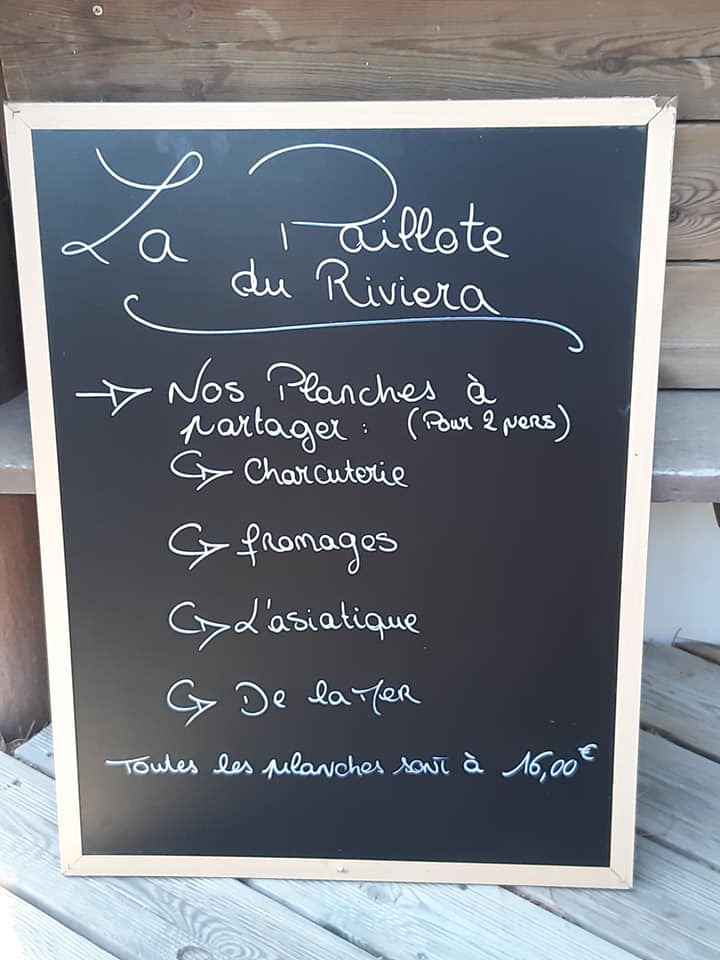 La Paillote
du Riviera
Nos Planches à
partager : (Pour 2 pers)
Charcuterie
fromages
L'asiatique
De la Mer
Toutes les planches sont à 16,00€